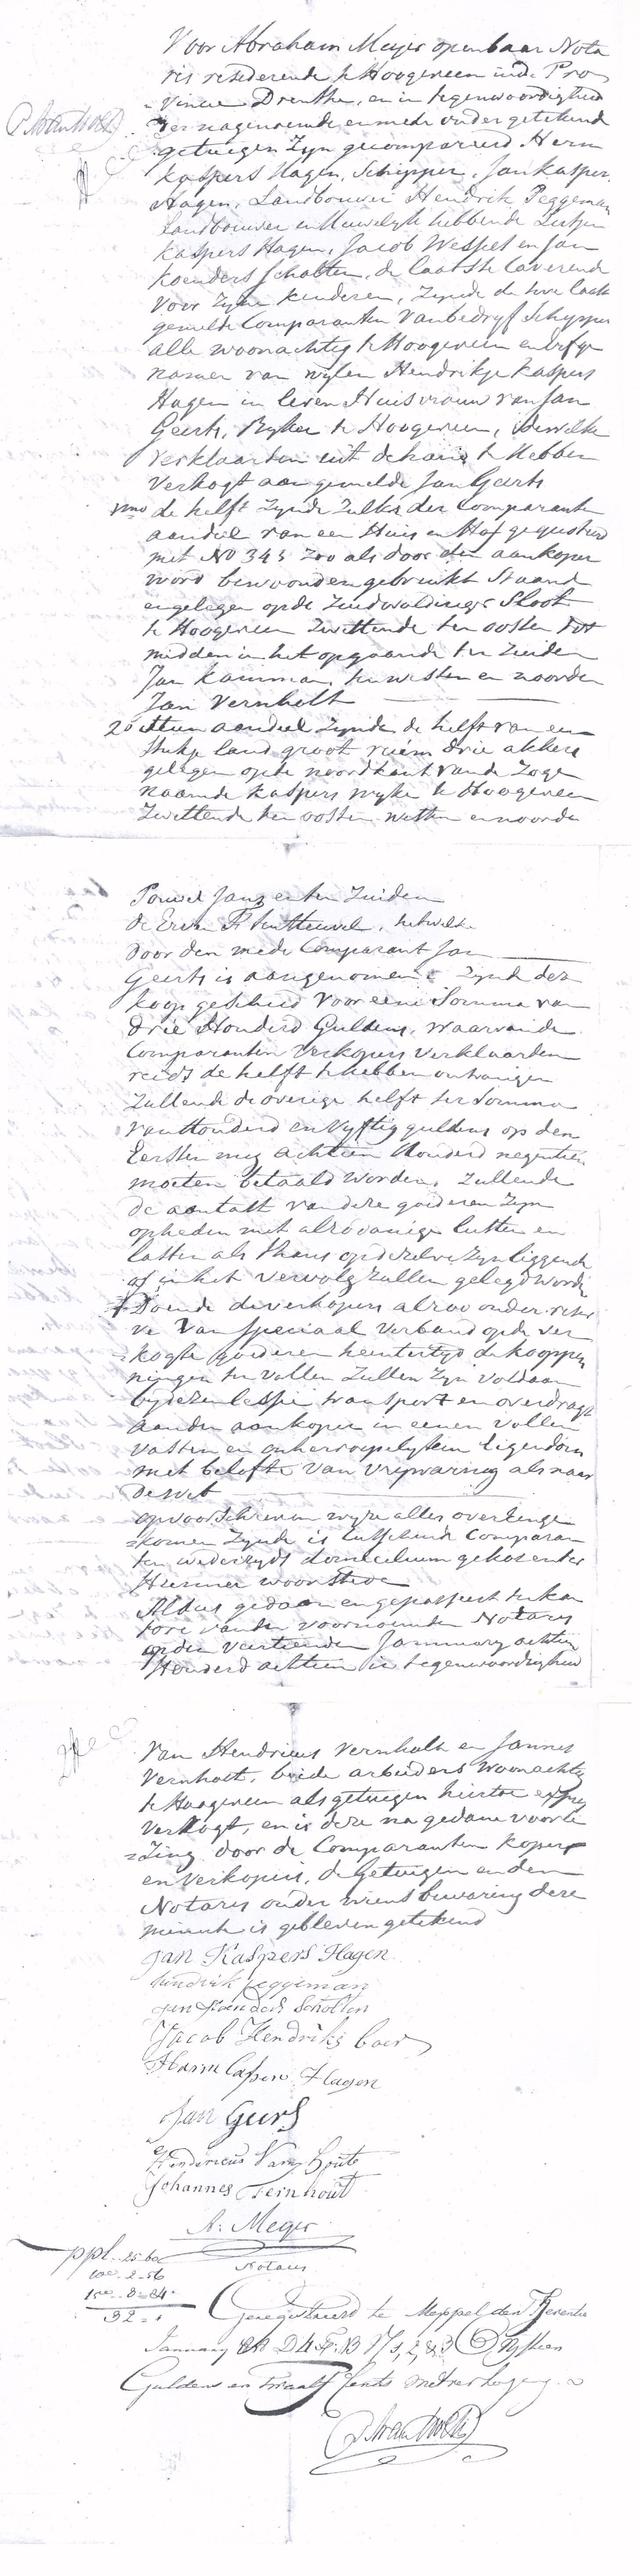 Voor Abraham Meijer openbaar Nota
ris resederende te Hoogeveen in de Pro
vincie Drenthe, en in tegenwoordigheid
der nagenoemde en mede onder getekend
getuigen Zyn gecompareerd Herm
Kaspers Hagen, Schipper, Jan Kaspers
Hagen, Landbouwer Hendrik Peggeman
Landbouwer in Huwelyk hebbende
Kaspers Hagen, Jacob Wessel en Jan
Koenders Scholten, de laatste Caverende
voor zyne kinderen, Zynde de twe laatst
gemelde Comparanten van bedryf Schipper
alle woonachtig te Hoogeveen en erfge
namen van wylen Hendrikje Kaspers
Hagen in leven Huisvrouw van Jan
Geerts, te Hoogeveen, dewelke
verklaarden uit de hand te Hebben
verkogt aan gemelde Jan Geerts
1mo de helft Zynde Zulks der Comparanten
aandeel van een Huis en Hof gequoteerd
met No 343 Zoo als door den aankoper
word bewoond en gebruikt Staande
en gelegen op de Zuidwoldiger Sloot
te Hoogeveen Zwettende ten oosten tot
midden in het opgaande ten Zuiden
Jan Kamman, ten westen en noorden
Jan Vernholt
20 aandeel Zynde de helft van een
Stukje land groot ruim drie akkers
gelegen op de noordkant van de Zoge
naamde Kaspers wyke te Hoogeveen
Zwettende ten oosten westen en noorden
Pouwel Janz en ten Zuiden
de Erven ten Heuvel, hetwelk
door den mede Comparant Jan
Geerts is aangenomen Zynde dez
koop geschied voor eene Somma van
drie Honderd Guldens, waarvan de
Comparanten verkopers verklaarden
reeds de helft te hebben ontvangen
Zullende de overige helft ter Somma
van Honderd en Vyftig guldens op den
Eersten mey achtien Honderd negentien
moeten betaald worden, Zullende
de aantast van deze goederen Zyn
op heden met alzoodanige lusten en
lasten als thans op dezelve Zyn liggende
of in het vervolg zullen gelegd worden
Doende de verkopers alzoo onder reser
ve van Speciaal verband op de ver
kogte goederen teentertyd de kooppen
ningen ten vollen Zullen Zyn voldaan
by dezen transport en overdragt
aan den aankoper in eenen vollen
vasten en onherroepelyken Eigendom
met belofte van vrijwaring als naar
de wet
op voorschreven wyze alles overeenge
komen Zynde is tusschende Comparan
ten wederzyds domicilium gekosen ter
Hunner woonstede
Aldus gedaan en gepasseert ten kan
tore van den voornoemden Notaris
op den veertienden January achtien
Honderd achtien in tegenwoordigheid
van Hendricus Vernholt en Jannes
Vernholt, beide arbeiders woonachtig
te Hoogeveen als getuigen hiertoe
verzogt, en is deze na gedane voorle
zing door de Comparanten kopers
en verkopers, de Getuigen en den
Notaris onder wiens bewaring deze
minuut is gebleven getekend
Jan Kaspers Hagen
Hendrik Peggeman
Jan Koenders Scholten
Jacob Hendriks boer
Harm Caspers Hagen
Jan Geers
Hendericus
Johannes Fernhout
A: Meijer
Notaris
ppl. 25-60
2-56
8-84
32-
Geregistreerd te Meppel den Zeventie
January 1818 D 4 F: 13 V 1, 2, & 3 Vyftien
Guldens en twaalf Cents met verhoging